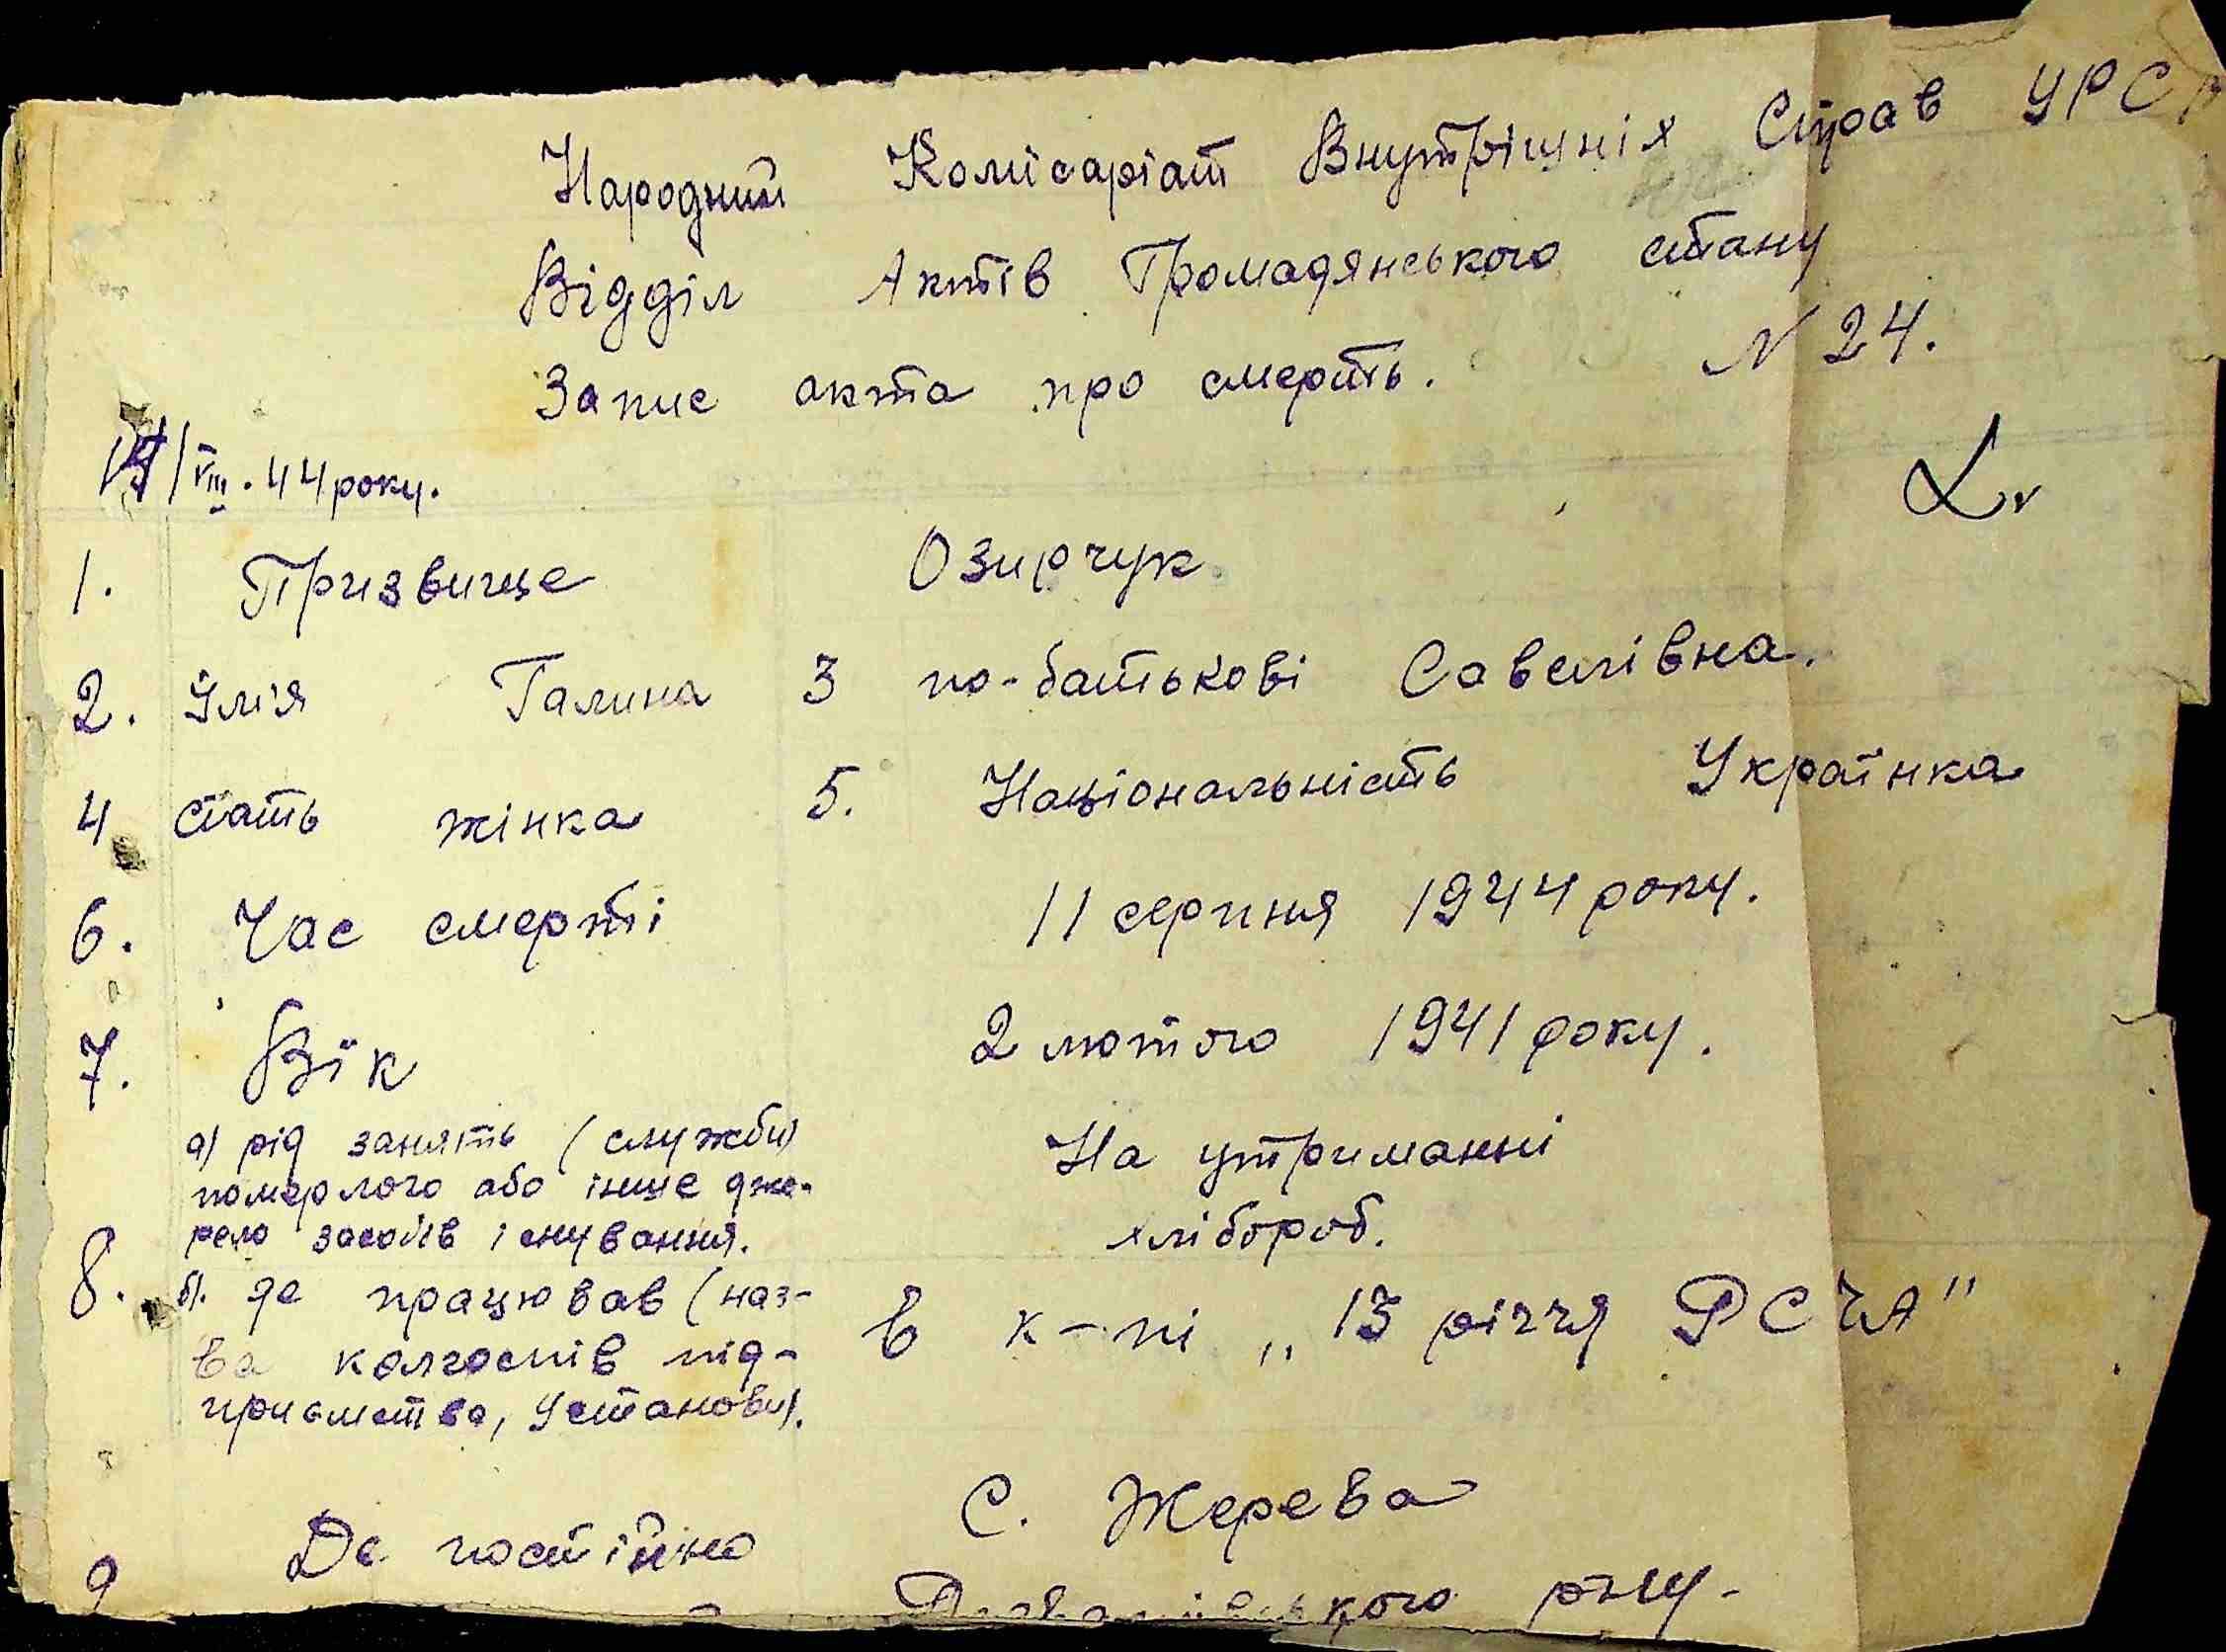 Народний Комісаріат Внутрішніх Справ УРСР
Відділ Актів Громадянського стану
Запис акта про смерть. N 24.
/VIII. 44 року.
1. Призвище Озирчук
2. Імія Галина 3 по-батькові Савелівна.
4 стать жінка 5. Національність Українка
6. Час смерті 11 серпня 1944 року.
7. Вік 2 лютого 1941 року.
а) рід занять (служби) На утриманні
померлого або інше дже-
рело засобів існування. хлібороб.
8. б). де працював (наз- в к-пі „13 річчя РСЧА"
ва колгоспів під-
приємства, установи).
С. Жерева
9 Де постійно
рну-